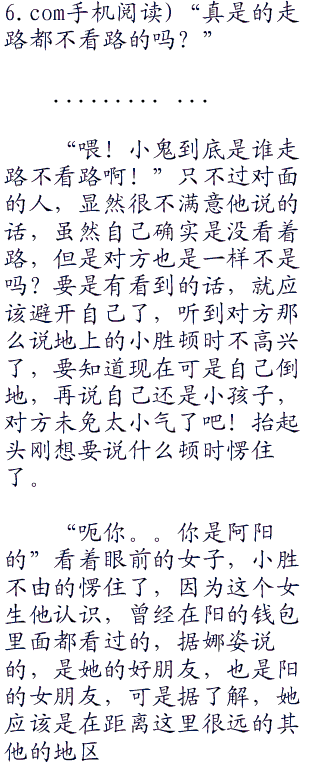 6.com手机阅读)“真是的走
路都不看路的吗?”
......... ...
“喂!小鬼到底是谁走
路不看路啊!”只不过对面
的人,显然很不满意他说的
话,虽然自己确实是没看着
路,但是对方也是一样不是
吗?要是有看到的话,就应
该避开自己了,听到对方那
么说地上的小胜顿时不高兴
了,要知道现在可是自己倒
地,再说自己还是小孩子,
对方未免太小气了吧!抬起
头刚想要说什么顿时愣住
了。
“呃你。。你是阿阳
的”看着眼前的女子,小胜
不由的愣住了,因为这个女
生他认识,曾经在阳的钱包
里面都看过的,据娜姿说
的,是她的好朋友,也是阳
的女朋友,可是据了解,她
应该是在距离这里很远的其
他的地区